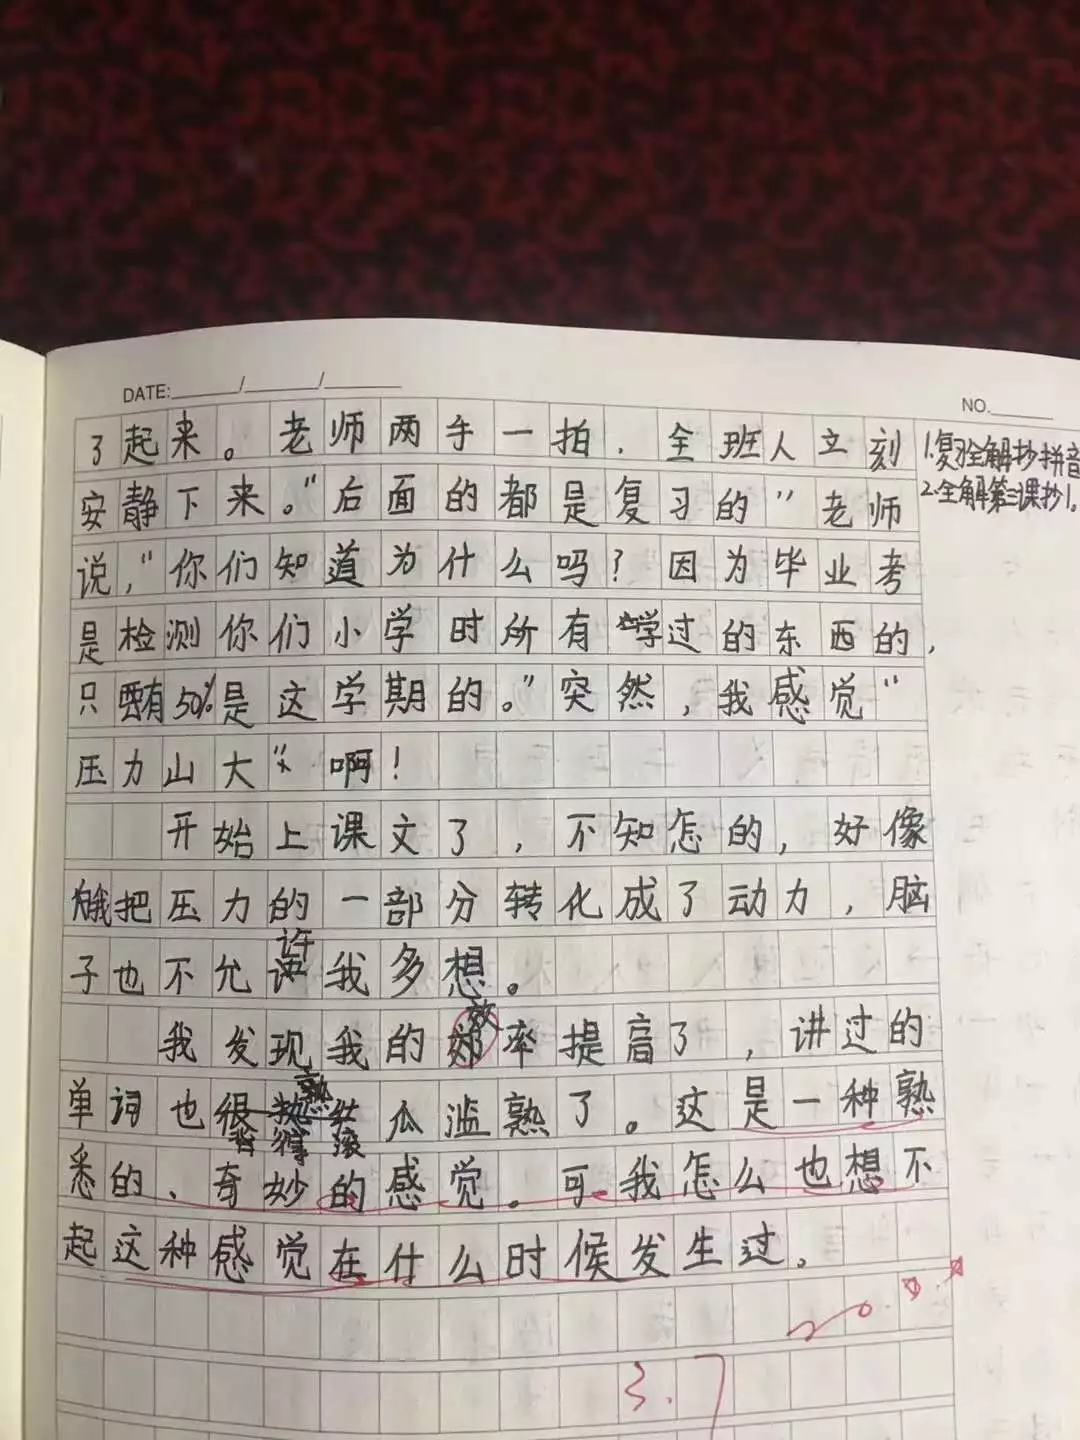 DATE:______/______/______
NO.______
了起来。老师两手一拍，全班人立刻
安静下来。“后面的都是复习的”老师
说，“你们知道为什么吗？因为毕业考
是检测你们小学时所有学过的东西的，
只有50%是这学期的。”突然，我感觉“
压力山大”啊！
开始上课文了，不知怎的，好像
我把压力的一部分转化成了动力，脑
子也不允许我多想。
我发现我的效率提高了，讲过的
单词也背滚瓜滥熟了。这是一种熟
悉的、奇妙的感觉。可我怎么也想不
起这种感觉在什么时候发生过。
1.复习全解抄拼音
2.全解第三课抄1。
3.7